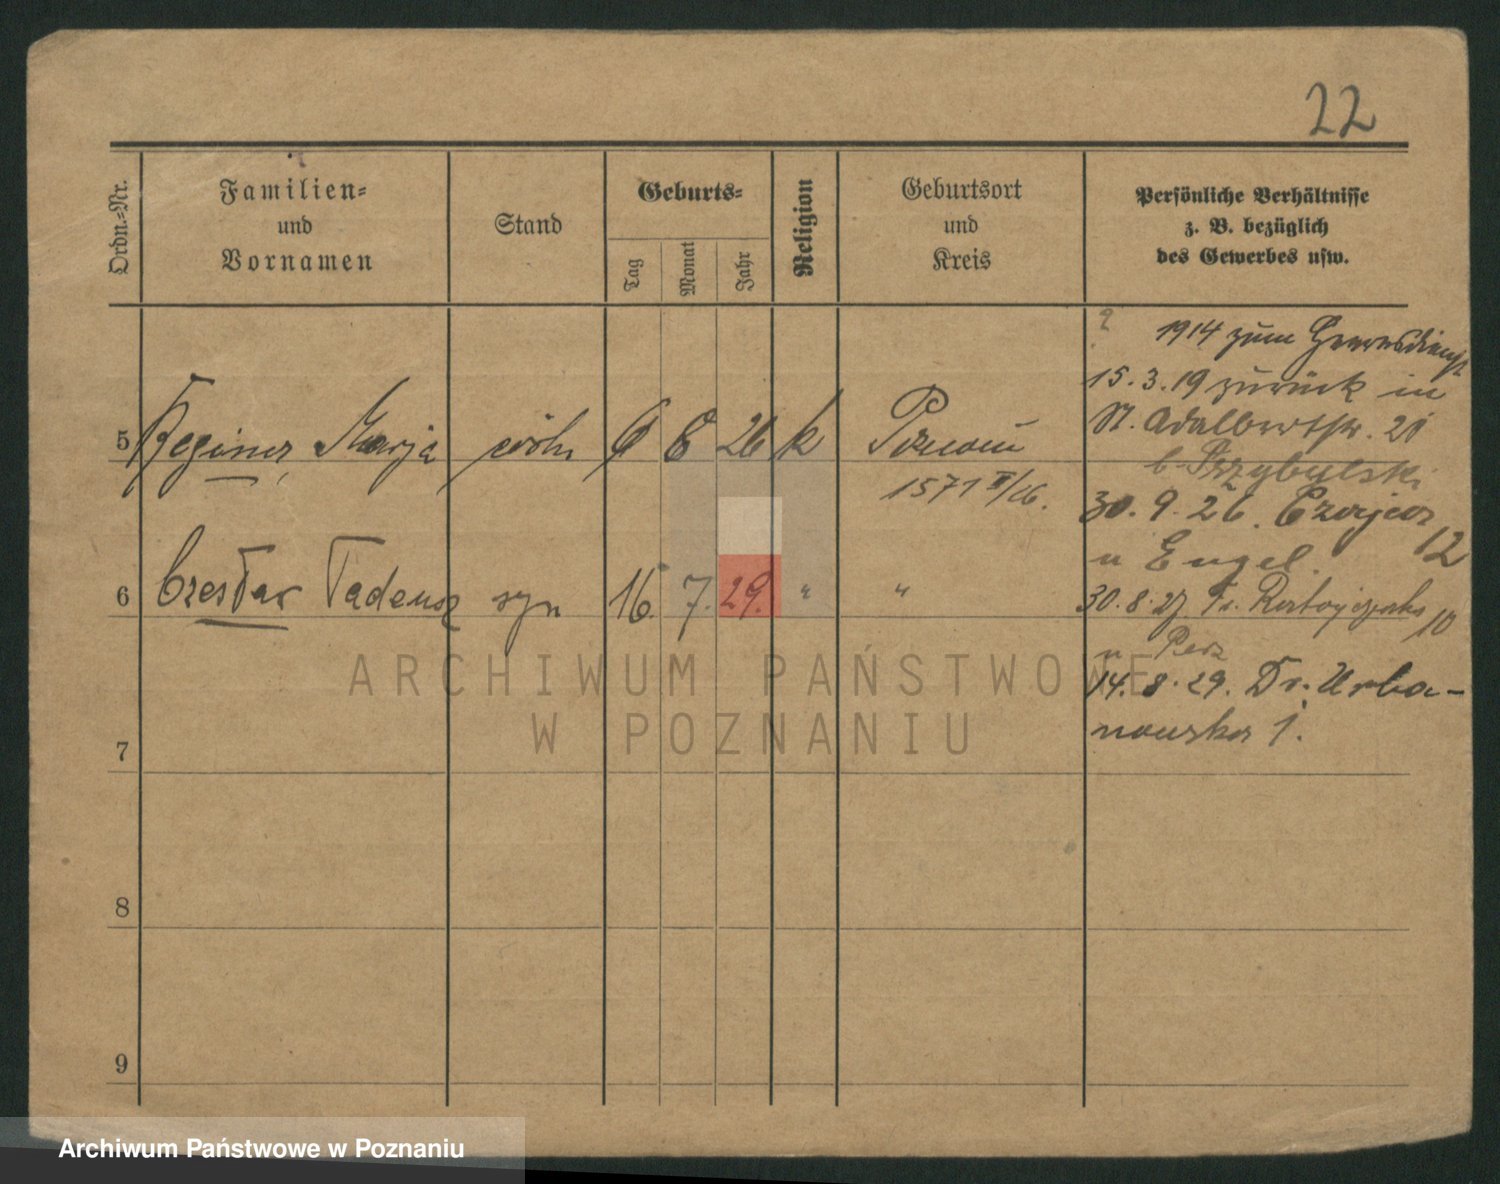 22
Ordn.=Nr.
Familien=
und
Vornamen
Stand
Geburts=
Tag
Monat
Jahr
Religion
Geburtsort
und
Kreis
Persönliche Verhältnisse
z. B. bezüglich
des Gewerbes usw.
1914 zum Heeresdienst
15.3.19 zurück in
St. Adalbertstr. 21
b. Przybylski
5 Marja 6 8 26 k Poznań
1571 II/26.
30. 9. 26. 12
u Engel.
6 Czesław Tadeusz syn 16. 7. 29. " "
30. 8. 27 Fr. Ratajczaka 10
u Perz
14. 8. 29. Dr. Urba-
nowska 1.
7
8
9
ARCHIWUM PAŃSTWOWE
W POZNANIU
Archiwum Państwowe w Poznaniu